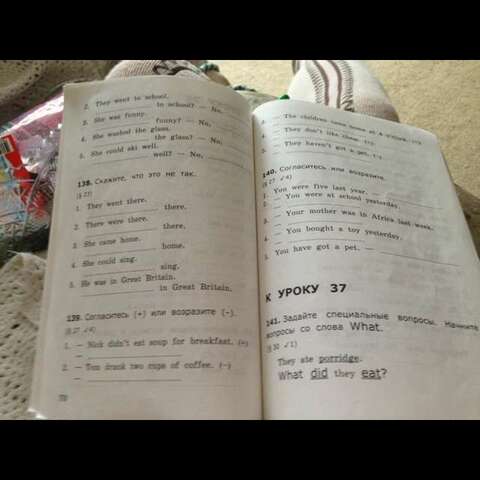 2. They went to school.
in school? — No,
3. She was funny.
funny? — No,
4. She washed the glass.
the glass? — No,
5. She could ski well.
well? — No,
138. Скажите, что это не так.
(§ 27)
1. They went there.
there.
2. There were there.
there.
3. She came home.
home.
4. She could sing.
sing.
5. He was in Great Britain.
in Great Britain.
139. Согласитесь (+) или возразите (–).
(§ 27 √4)
1. — Nick didn't eat soup for breakfast. (+)
—
2. — Tom drank two cups of coffee. (–)
—
— The children came home at
— They don't like
— They haven't got a pet.
140. Согласитесь или возразите.
(§ 27 √4)
1. — You were five last year. —
2. — You were at school yesterday.
—
3. — Your mother was in Africa last week.
—
4. — You bought a toy yesterday.
—
5. You have got a pet. —
К УРОКУ 37
141. Задайте специальные вопросы. Начните
вопросы со слова What.
(§ 30 √1)
They ate porridge.
What did they eat?